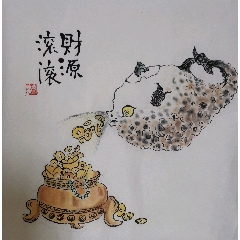 財源
滾滾